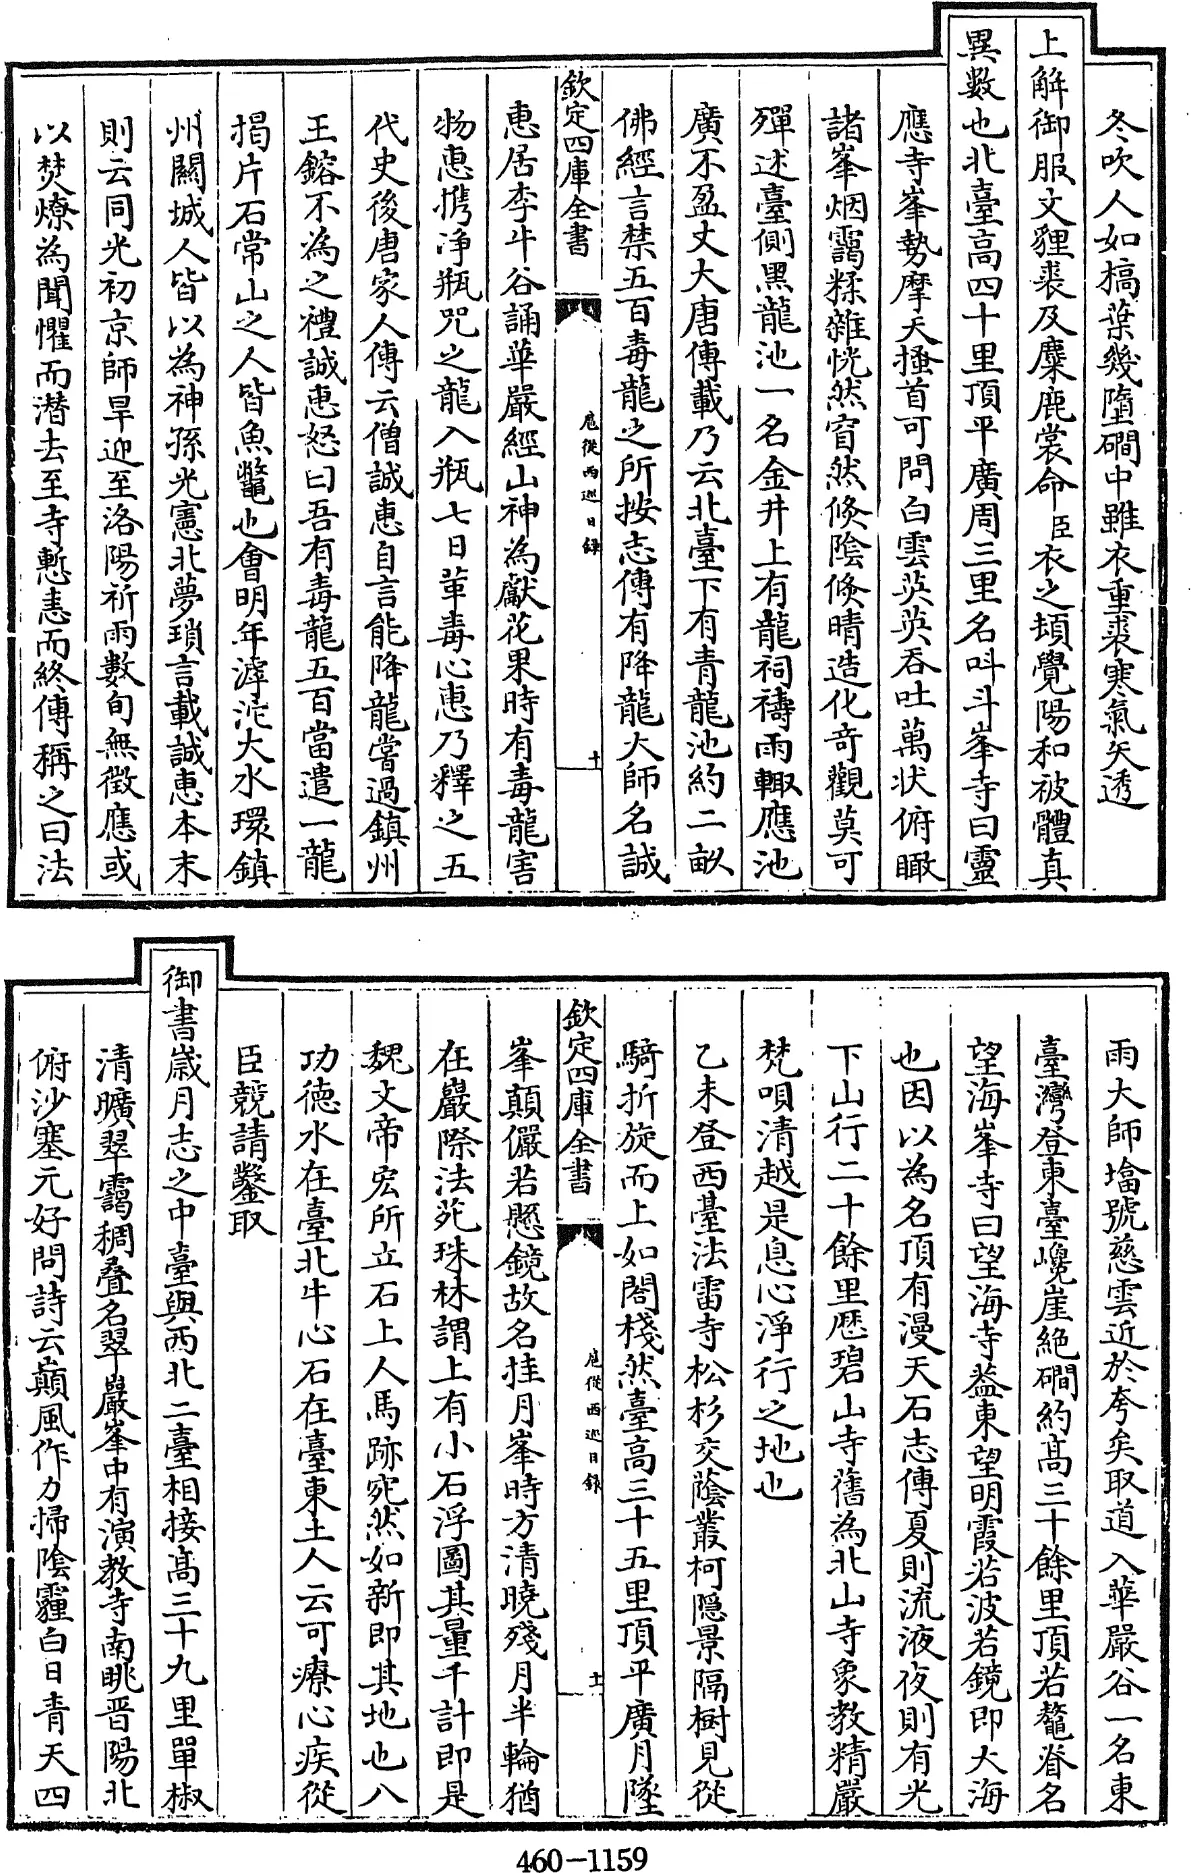 冬吹人如槁葉幾墮磵中雖衣重裘寒氣矢透
上解御服文貍裘及麋鹿裳命臣衣之頃覺陽和被體真
異數也北臺高四十里頂平廣周三里名叫斗峯寺曰靈
應寺峯勢摩天搔首可問白雲英英吞吐萬狀俯瞰
諸峯烟靄糅雜恍然窅然倐陰倐晴造化奇觀莫可
殫述臺側黑龍池一名金井上有龍祠禱雨輙應池
廣不盈丈大唐傳載乃云北臺下有青龍池約二畝
佛經言禁五百毒龍之所按志傳有降龍大師名誠
欽定四庫全書
扈從西巡日錄
十
惠居李牛谷誦華嚴經山神為獻花果時有毒龍害
物惠攜净瓶咒之龍入瓶七日革毒心惠乃釋之五
代史後唐家人傳云僧誠惠自言能降龍嘗過鎮州
王鎔不為之禮誠惠怒曰吾有毒龍五百當遣一龍
揭片石常山之人皆魚鼈也會明年滹沱大水環鎮
州關城人皆以為神孫光憲北夢瑣言載誠惠本末
則云同光初京師旱迎至洛陽祈雨數旬無徵應或
以焚燎為聞懼而潛去至寺慙恚而終傳稱之曰法
雨大師墖號慈雲近於夸矣取道入華嚴谷一名東
臺灣登東臺巉崖絕磵約高三十餘里頂若鼇脊名
望海峯寺曰望海寺葢東望明霞若波若鏡即大海
也因以為名頂有漫天石志傳夏則流液夜則有光
下山行二十餘里歷碧山寺舊為北山寺象教精嚴
梵唄清越是息心淨行之地也
乙未登西臺法雷寺松杉交蔭叢柯隱景隔樹見從
騎折旋而上如閣棧然臺高三十五里頂平廣月墜
欽定四庫全書
扈從西巡日錄
十一
峯顛儼若懸鏡故名挂月峯時方清曉殘月半輪猶
在巖際法苑珠林謂上有小石浮圖其量千計即是
魏文帝宏所立石上人馬跡宛然如新即其地也八
功德水在臺北牛心石在臺東土人云可療心疾從
臣競請鑿取
御書歲月志之中臺與西北二臺相接高三十九里單椒
清曠翠靄稠叠名翠巖峯中有演教寺南眺晋陽北
俯沙塞元好問詩云巔風作力掃陰霾白日青天四
460-1159